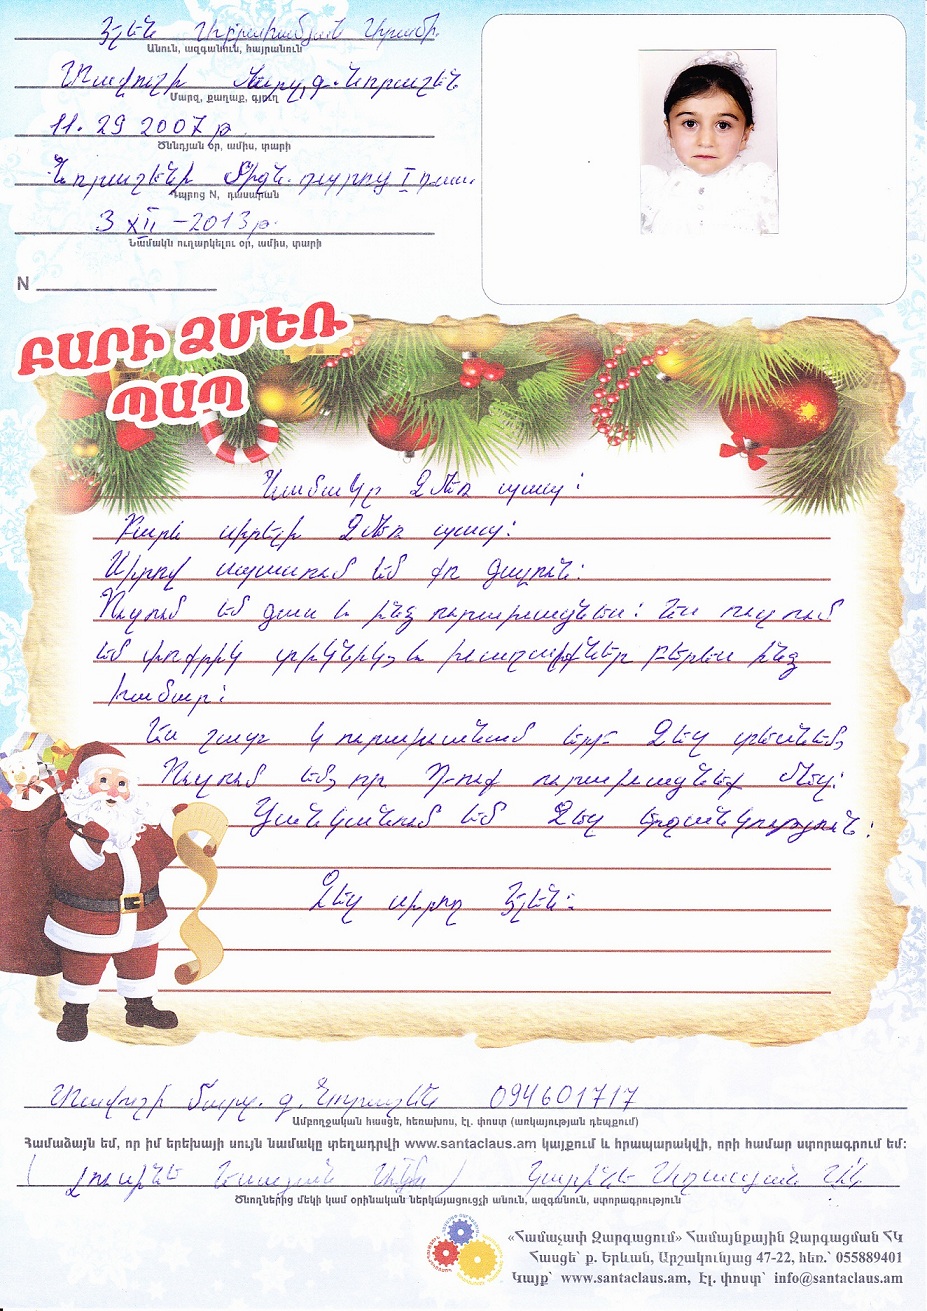 Էլեն Աբրահամյան Արամի
Անուն, ազգանուն, հայրանուն
Տավուշի մարզ, գ. Նորաշեն
Մարզ, քաղաք, գյուղ
11. 29 2007 թ
Ծննդյան օր, ամիս, տարի
Նորաշենի միջն. դպրոց I դաս.
Դպրոց N, դասարան
3 XII -2013թ.
Նամակն ուղարկելու օր, ամիս, տարի
N
ԲԱՐԻ ՁՄԵՌ
ՊԱՊ
Նամակը Ձմեռ պապ:
Բարև սիրելի Ձմեռ պապ:
Սիրով սպասում եմ քո գալուն:
Ուզում եմ գաս և ինձ ուրախացնես: Ես ուզում
եմ փոքրիկ տիկնիկ, և խաղալիքներ բերես ինձ
համար:
Ես շատ կուրախանամ երբ Ձեզ տեսնեմ,
Ուզում եմ, որ Դուք ուրախացնեք մեզ:
Ցանկանում եմ Ձեզ երջանկություն:
Ձեզ սիրող Էլեն:
Տավուշի մարզ. գ. Նորաշեն 094601717
Ամբողջական հասցե, հեռախոս, էլ. փոստ (առկայության դեպքում)
Համաձայն եմ, որ իմ երեխայի սույն նամակը տեղադրվի www.santaclaus.am կայքում և հրապարակվի, որի համար ստորագրում եմ:
Լուսինե
Ծնողներից մեկի կամ օրինական ներկայացուցչի անուն, ազգանուն, ստորագրություն
«Համաչափ Զարգացում» Համայնքային Զարգացման ՀԿ
Հասցե՝ ք. Երևան, Արշակունյաց 47-22, հեռ.՝ 055889401
Կայք՝ www.santaclaus.am, Էլ. փոստ՝ info@santaclaus.am